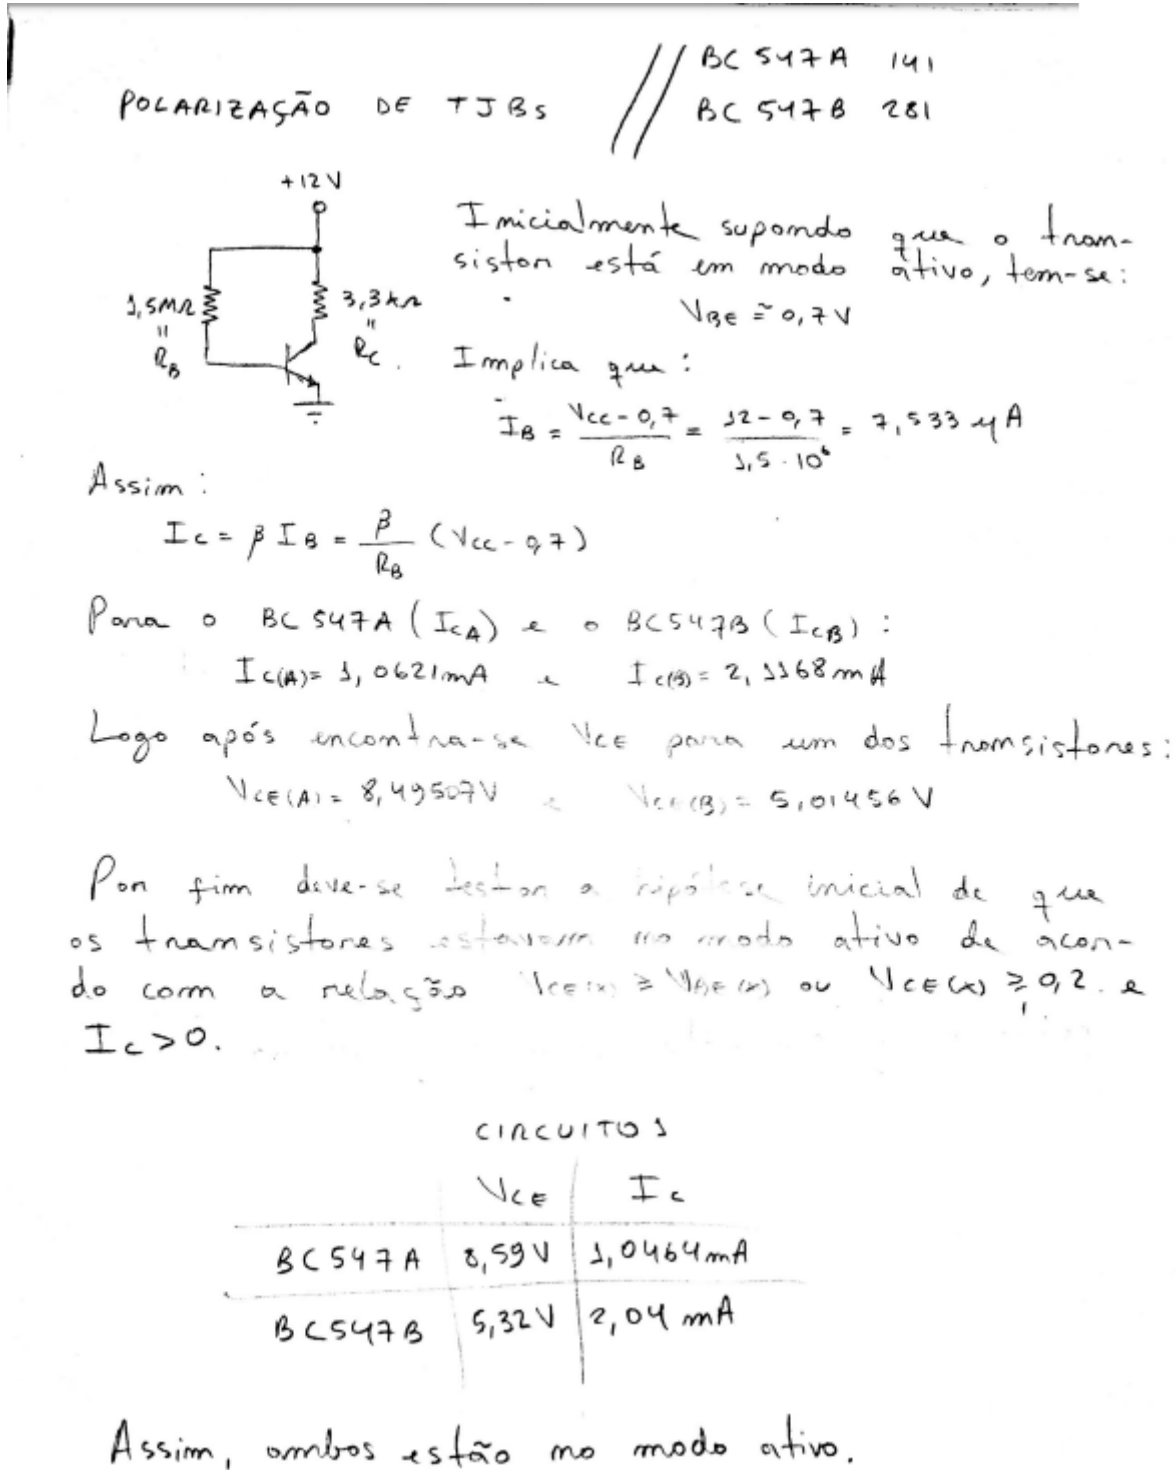 BC 547A 141
POLARIZAÇÃO DE TJBs // BC 547B 281
+12V
Inicialmente supondo que o tran-
sistor está em modo ativo, tem-se:
1,5MΩ
"
RB
3,3kΩ
"
RC
VBE ≅ 0,7V
Implica que:
IB = (VCC - 0,7)/RB = (12 - 0,7)/(1,5 · 10⁶) = 7,533 μA
Assim:
IC = β IB = β/RB (VCC - 0,7)
Para o BC547A (ICA) e o BC547B (ICB):
IC(A)= 1,0621mA e IC(B)= 2,1168mA
Logo após encontra-se VCE para um dos transistores:
VCE(A)= 8,49507V e VCE(B)= 5,01456V
Por fim deve-se testar a hipótese inicial de que
os transistores estavam no modo ativo de acor-
do com a relação VCE(x) ≥ VBE(x) ou VCE(x) ≥ 0,2 e
IC>0.
CIRCUITO 1
VCE IC
BC547A 8,59V 1,0464mA
BC547B 5,32V 2,04 mA
Assim, ambos estão no modo ativo.